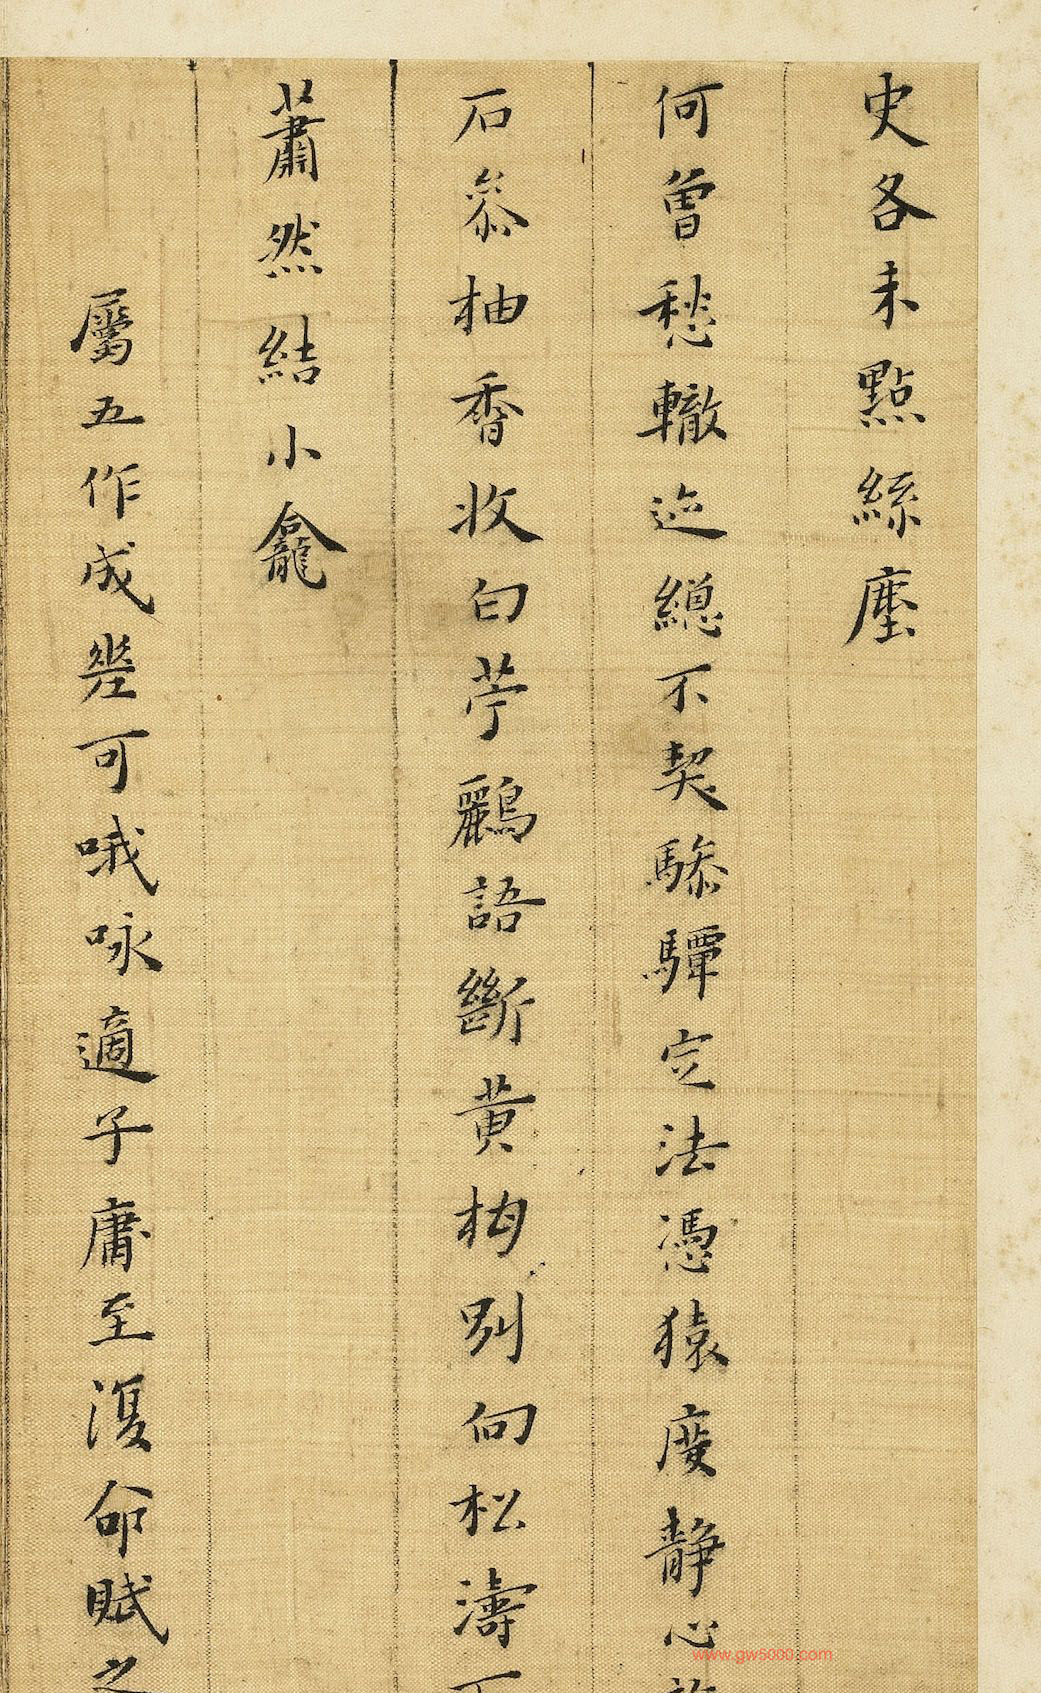 史各未點絲塵
何曾愁轍迹總不契驂驔定法憑猿度靜心
石叅柚香收白苧鸝語斷黄梅别向松濤下
蕭然結小龕
屬五作成㘴可哦咏適子庸至復命賦之
www.gw5000.com